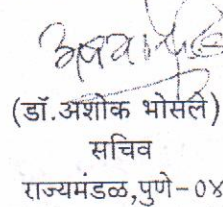 (डॉ.अशोक भोसले)
सचिव
राज्यमंडळ,पुणे-०४